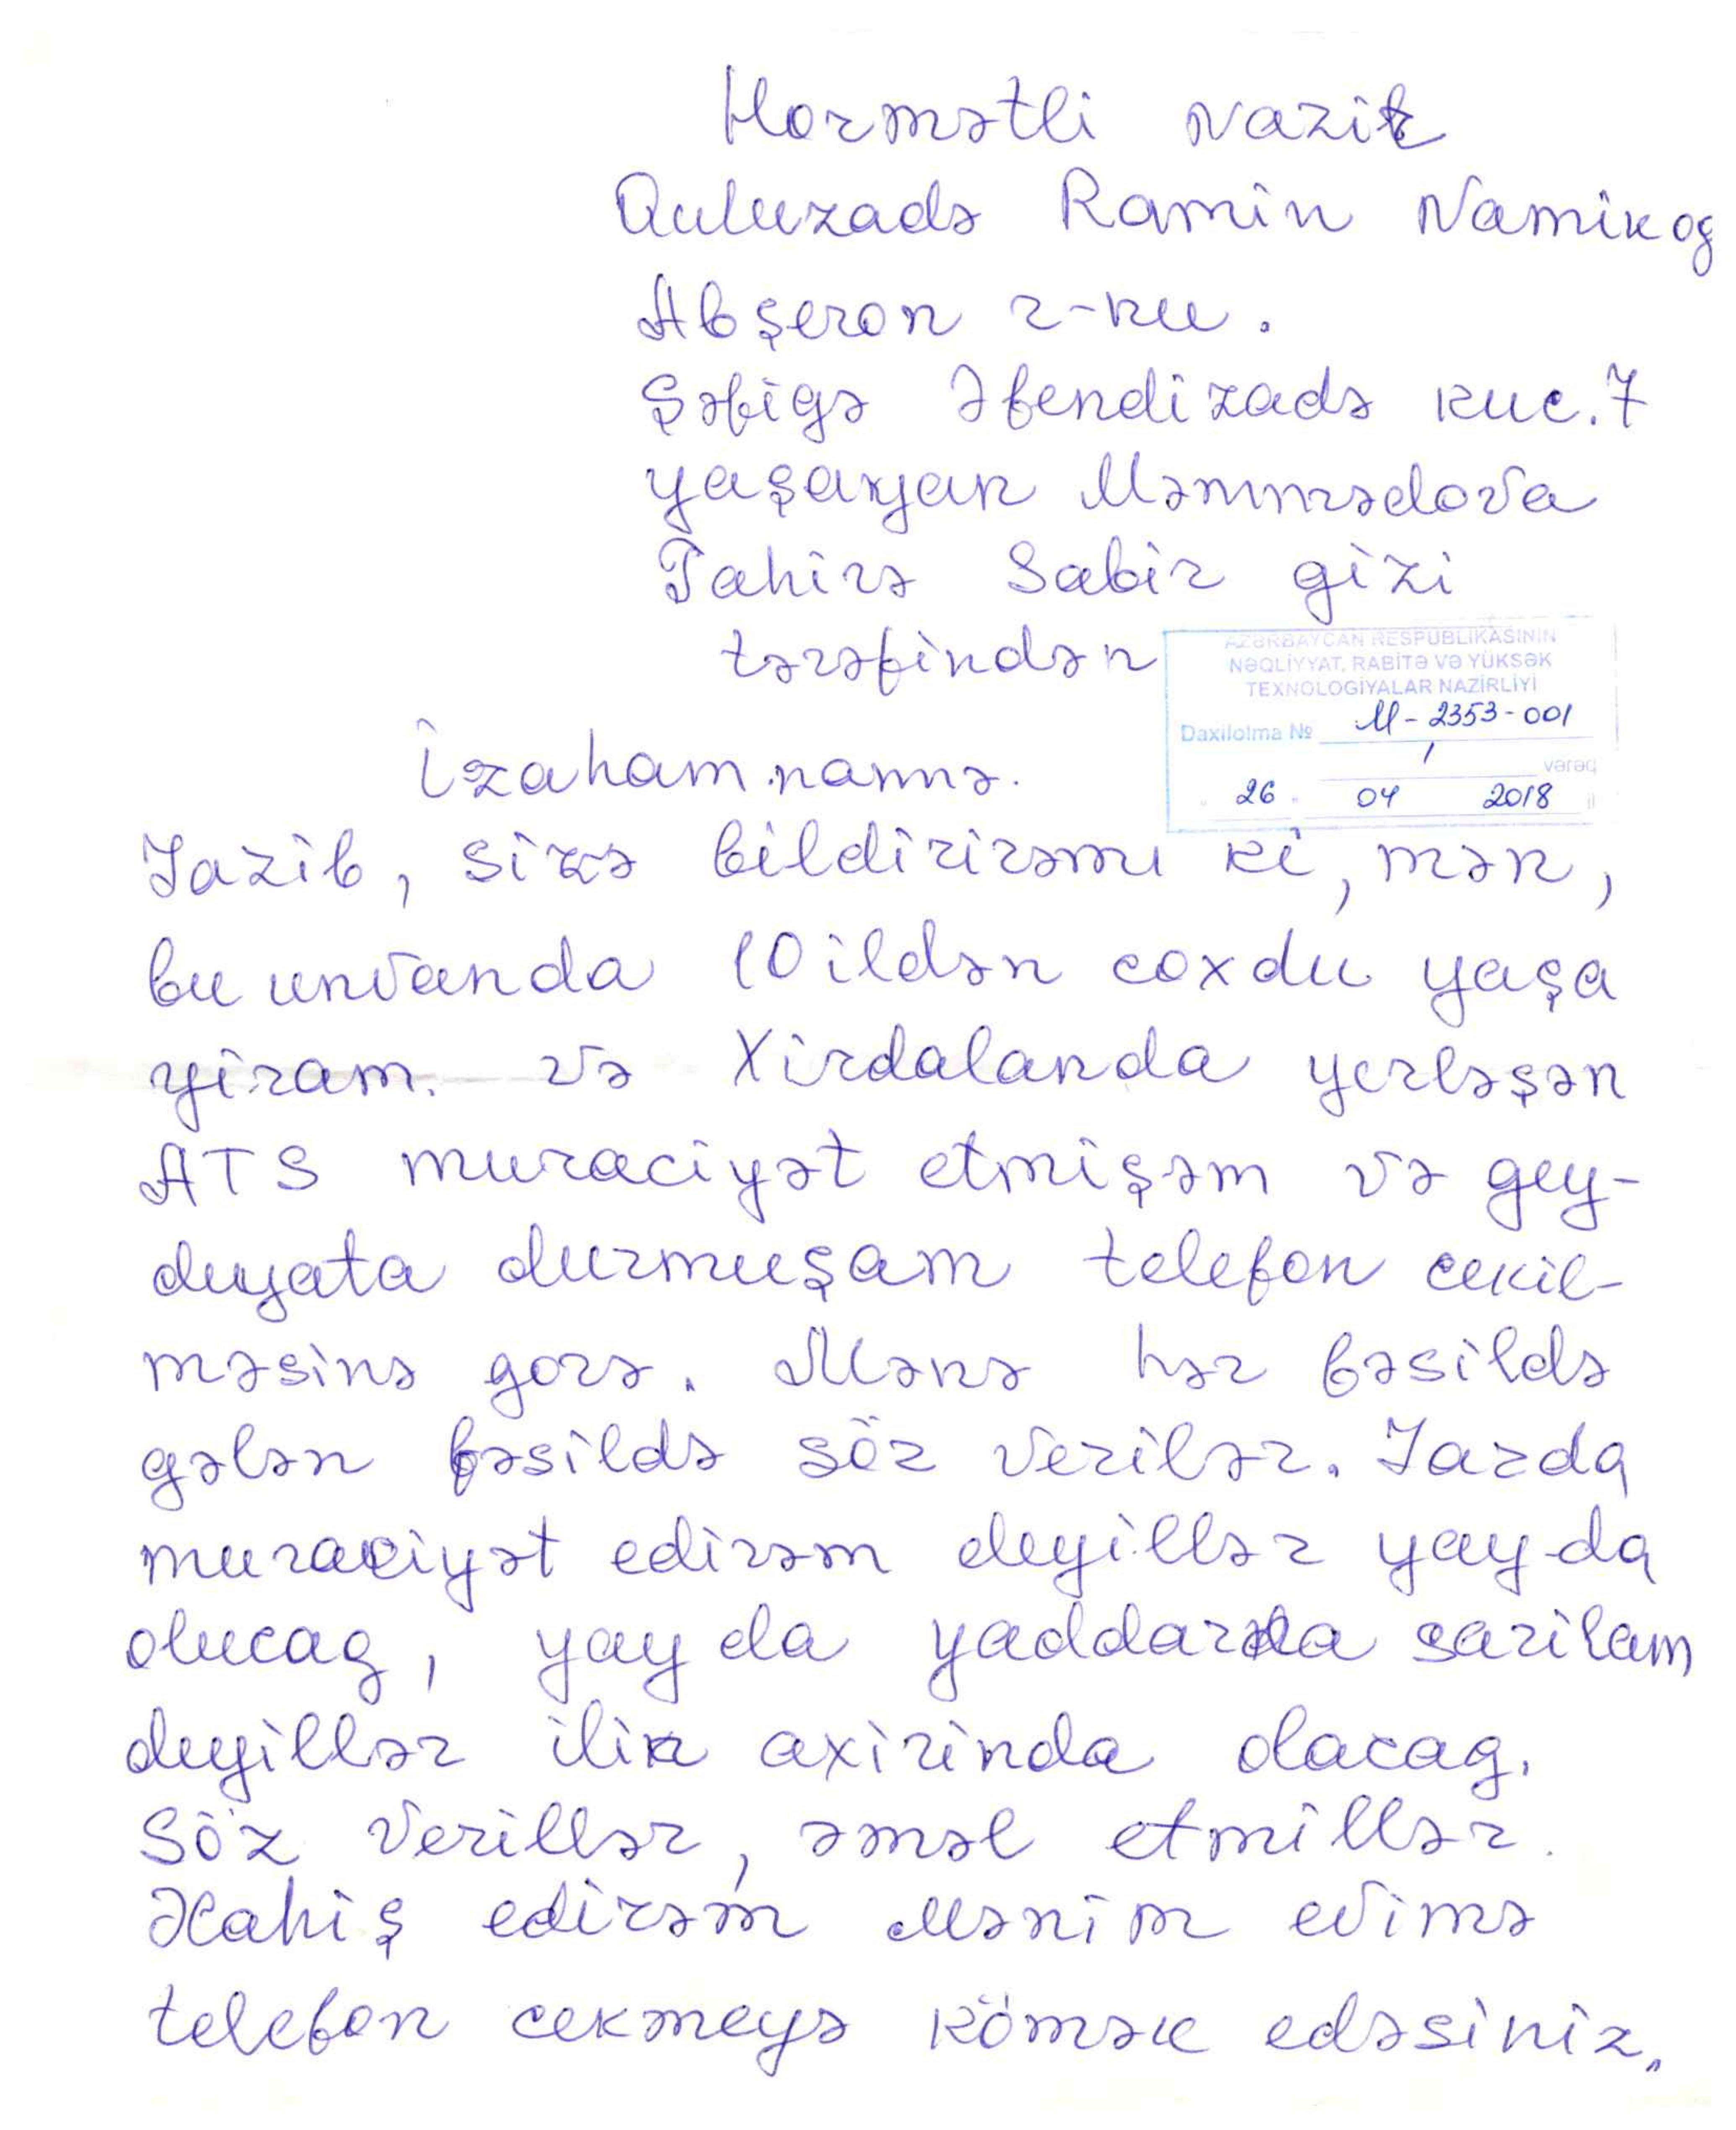 Hormətli Nazir
Quluzadə Ramin Namik og
Abşeron r-nu.
Şəfigə Əfendizadə kuc. 7
yaşayan Məmmədova
Tahirə Sabir gizi
tərəfindən
AZƏRBAYCAN RESPUBLİKASININ
NƏQLİYYAT, RABİTƏ VƏ YÜKSƏK
TEXNOLOGİYALAR NAZİRLİYİ
Daxilolma № M-2353-001
1 vərəq
26 04 2018 il
İzahamnamə.
Yazib, sizə bildirirəm ki, mən,
bu unvanda 10 ildən coxdu yaşa
yiram. və Xirdalanda yerləşən
ATS muraciyət etmişəm və gey-
duyata durmuşam telefon cekil-
məsinə gorə. Mənə hər fəsildə
gələn fəsildə söz verilər. Yazda
muraciyət edirəm deyillər yay-da
olucag, yay da yaddarda sarilam
deyillər ilin axirinda olacag.
Söz verillər, əməl etmillər.
Xahiş edirəm mənim evimə
telefon cekmeyə kömək edəsiniz.